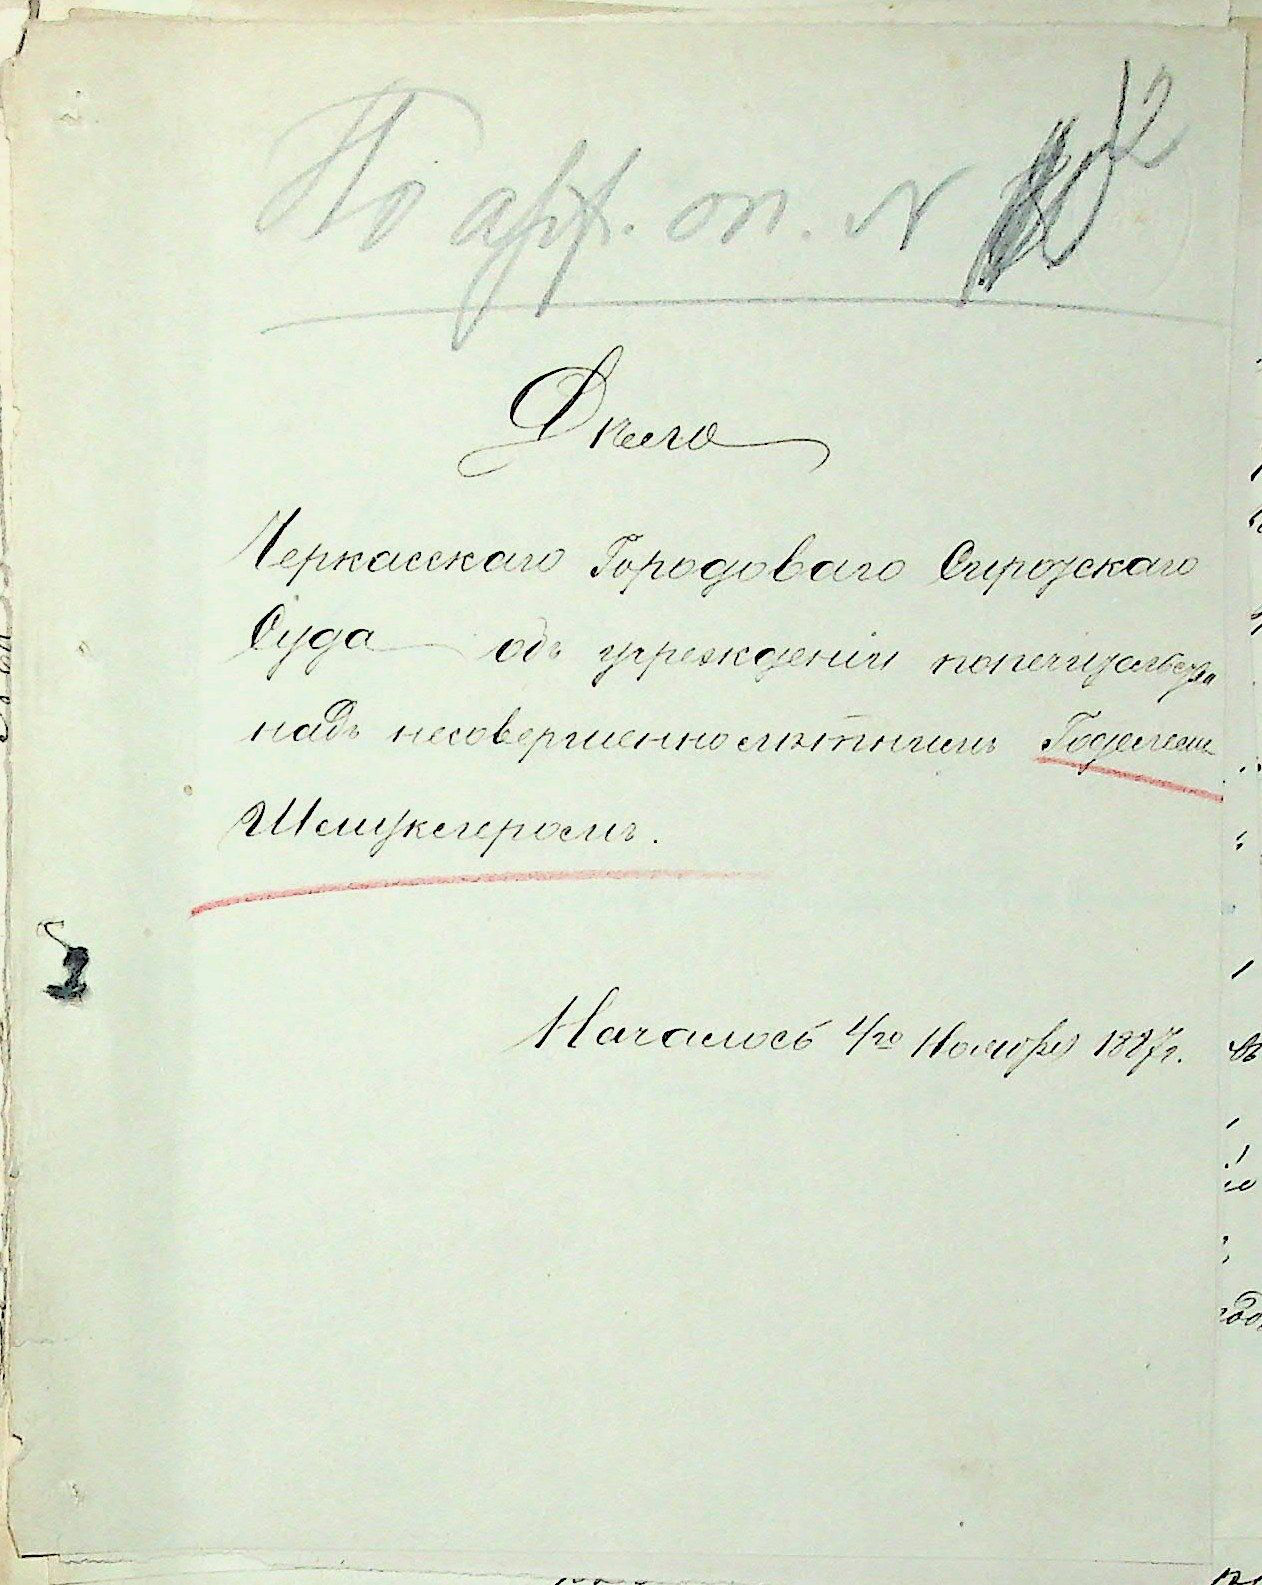 По арх. оп. № 12
Дѣло
Черкасскаго Городоваго Сиротскаго
Суда объ учрежденіи попечительства
надъ несовершеннолѣтнимъ
Началось 4го Ноября 1887 г.